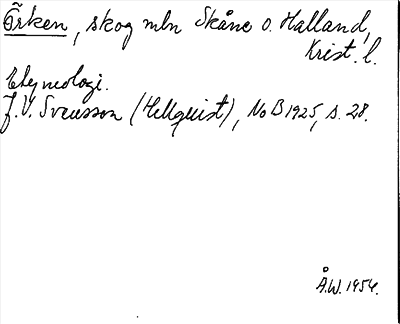 Örken, skog mln Skåne o. Halland,
Krist. l.
Etymologi.
J.V. Svensson (Hellquist), NoB 1925, s. 28.
Å.W. 1954.